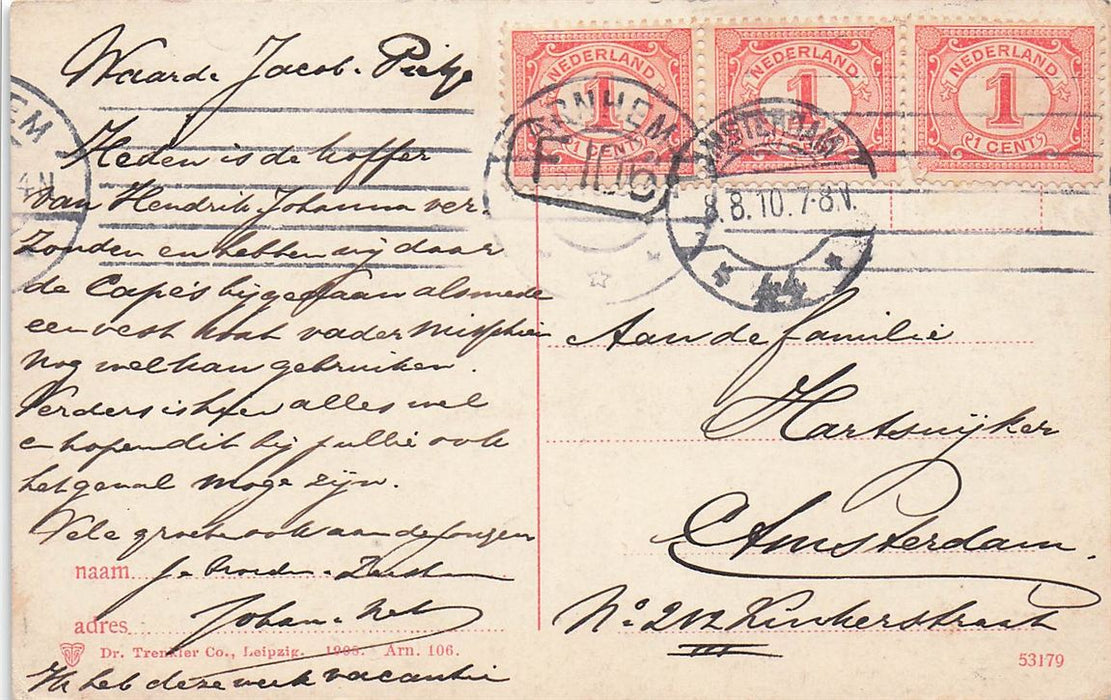 Waarde Jacob. Pietje
Heden is de koffer
van Hendrik Johanna ver-
zonden en hebben wij daar
de Cape's bijgedaan alsmede
een vest kant vader misschien
nog wel kan gebruiken.
Verders is hier alles wel
en hopen dit bij jullie ook
het geval moge zijn.
Vele groeten ook aan de jongen
naam Je Broeder. Zuster
adres Johan.
Dr. Trenkler Co., Leipzig. 1908. Arn. 106.
Ik heb deze week vacantie
NEDERLAND
1
1 CENT
NEDERLAND
1
1 CENT
NEDERLAND
1
1 CENT
EM
4N
ARNHEM
1106
AMSTERDAM
8.8.10.7-8V.
44
Aan de familie
Hartsuijker
Amsterdam.
No. 212 Kinkerstraat
III
53179